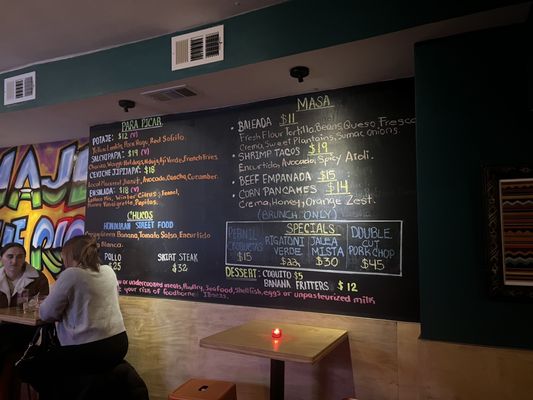 PARA PICAR
POTAJE: $12 (V)
Yellow Lentils, Pork Hugs, Red Sofrito.
SALCHIPAPA: $19 (V)
French Fries
CEVICHE JIPIJAPA: $18
Local Mackerel, Peanut, Avocado, Cancha, Cucumber.
ENSALADA: $18 (V)
Lettuce Mix, Winter Citrus, Fennel,
Honey Vinaigrette, Pepitas.
CHUCOS
HONDURAN STREET FOOD
Green Banana, Tomato Salsa, Encurtido
Blanca
POLLO
$25
SKIRT STEAK
$32
MASA
BALEADA $11
Fresh Flour Tortilla, Beans, Queso Fresco,
Crema, Sweet Plantains, Sumac Onions.
SHRIMP TACOS $19
Encurtido, Avocado, Spicy Aioli.
BEEF EMPANADA $15
CORN PANCAKES $14
Crema, Honey, Orange Zest.
(BRUNCH ONLY)
SPECIALS
PERNIL CROQUETAS $15
RIGATONI VERDE $22
JALEA MIXTA $30
DOUBLE CUT PORK CHOP $45
DESSERT: COQUITO $5
BANANA FRITTERS $12
or undercooked meats, Poultry, Seafood, Shellfish, eggs or unpasteurized milk
your risk of foodborne Illness.